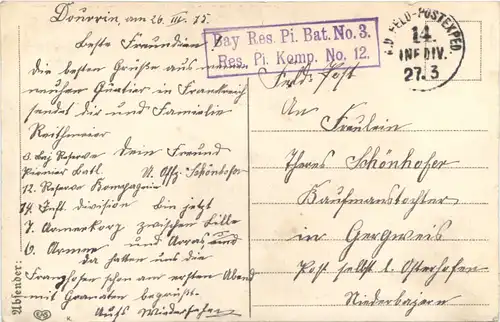 Dourrin, am 26. III. 15.
Beste Freundin
die besten Grüße aus meinem
neuen Quatier in Frankreich
sendet dir und Familie
Reithmeier
3. Baj Reserve Dein Freund
Pionier Batl. U. Offz. Schönhofer
12. Reserve Kompagnie
14. Inft. Division bin jetzt
7. Armeekorp zwischen Lille
6. Armee und Arras und
da hatten uns die
Franzhosen schon am ersten Abend
mit Granaten begrüßt.
Aufs Wiedersehen
Absender:
Bay Res. Pi. Bat. No. 3.
Res. Pi. Komp. No. 12.
K.D. FELD-POSTEXPED.
14.
INF. DIV.
27.3
Feld-Post
An
Fräulein
Theres Schönhofer
Kaufmanstochter
in Gergweis
Post selbst b. Osterhofen
Niederbayern